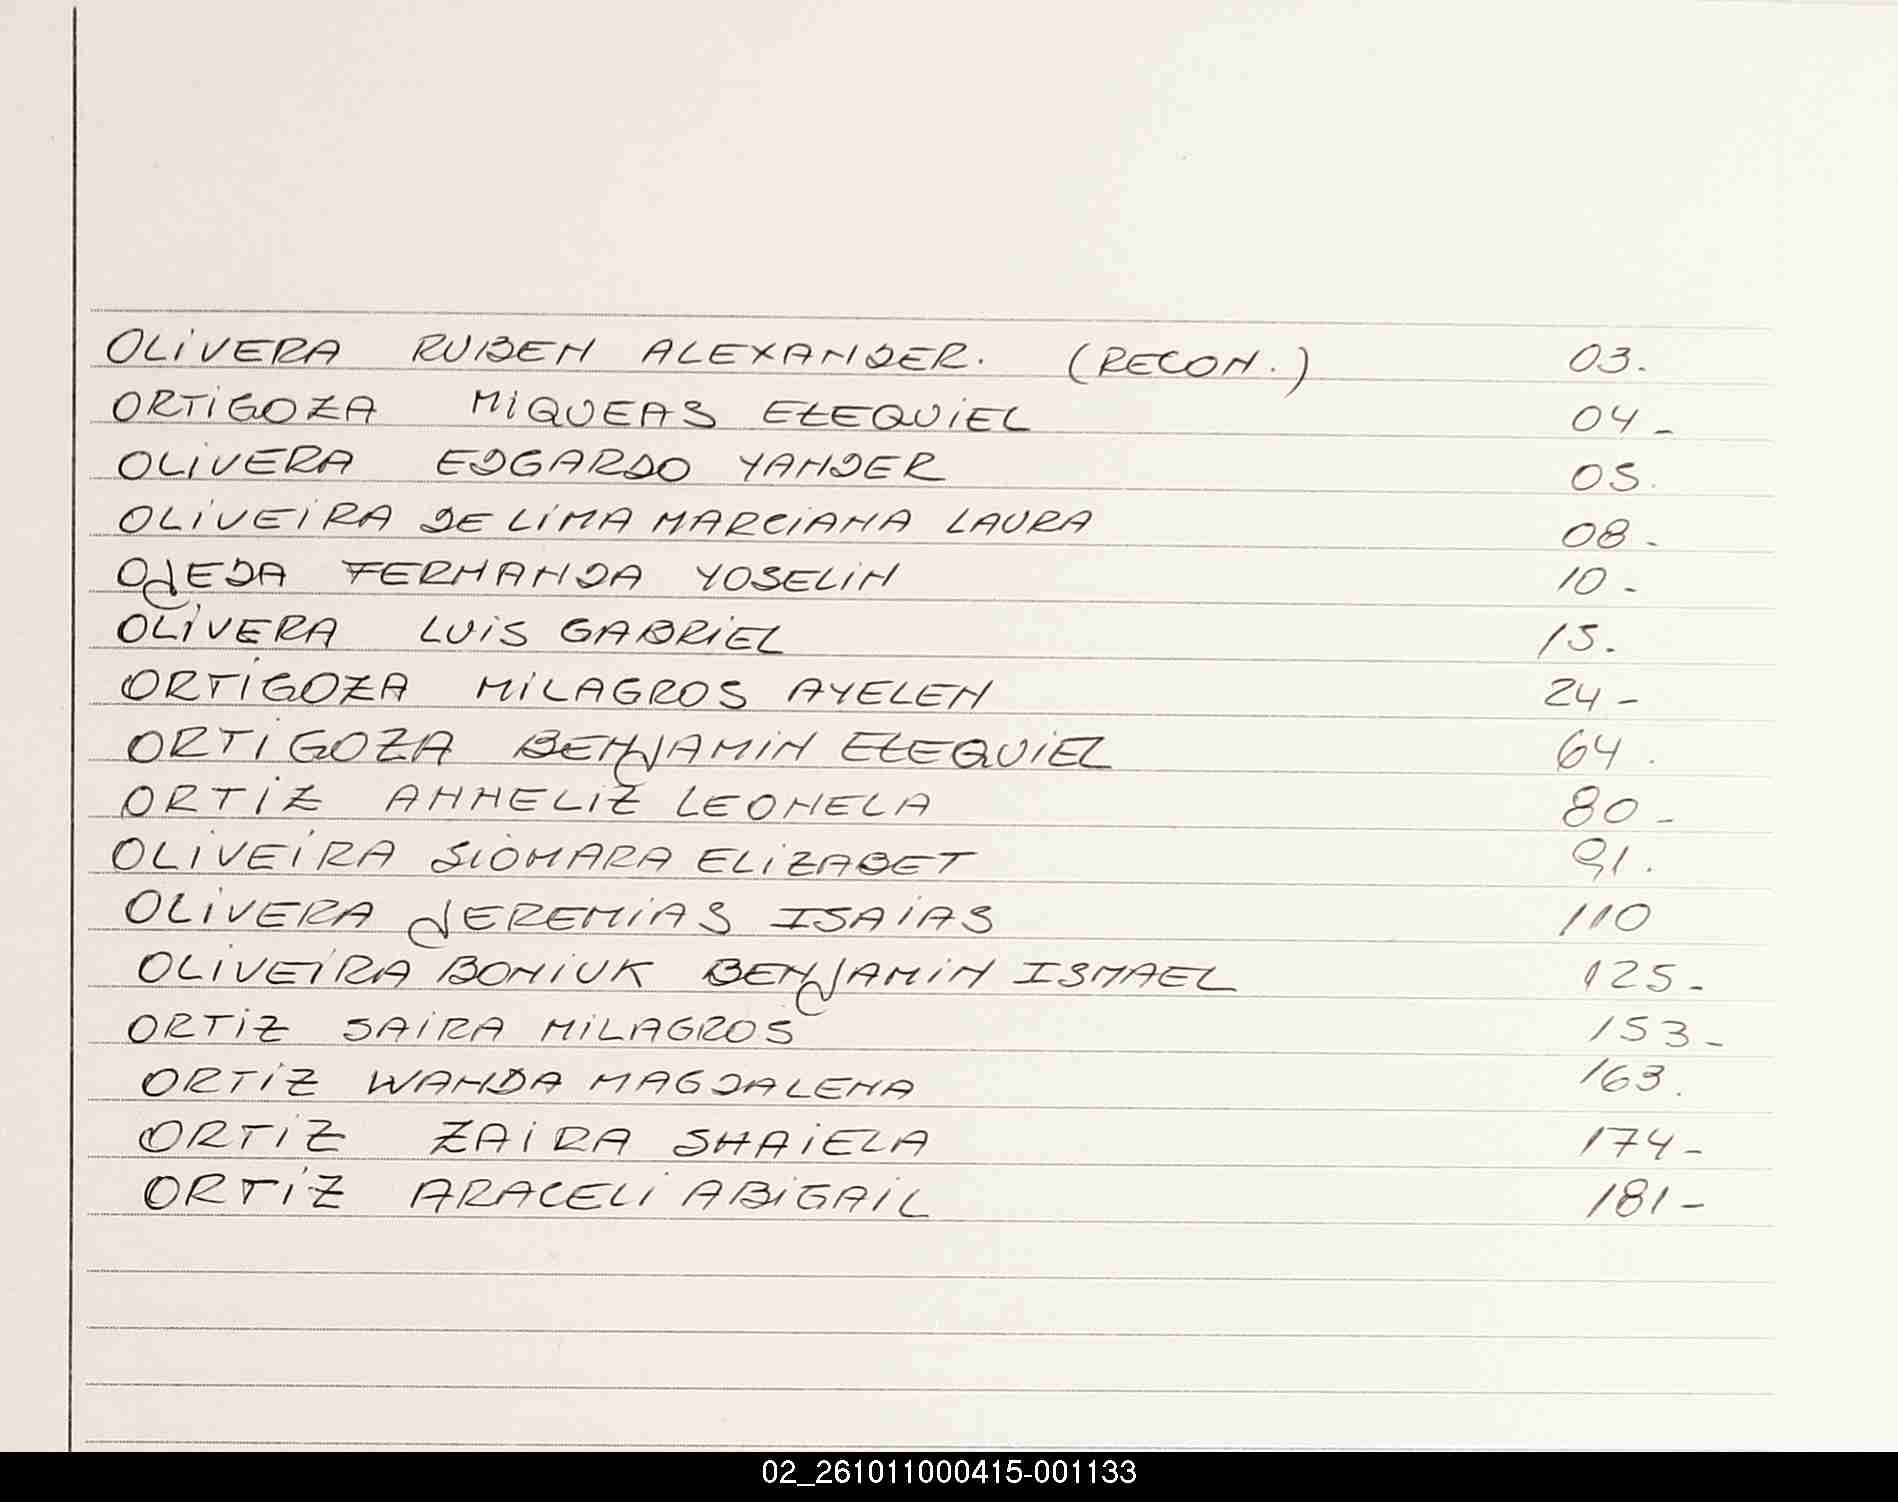 OLIVERA RUBEN ALEXANDER. (RECON.) 03.
ORTIGOZA MIQUEAS EZEQUIEL 04-
OLIVERA EDGARDO YANDER 05.
OLIVEIRA DE LIMA MARCIANA LAURA 08-
OJEDA FERNANDA YOSELIN 10-
OLIVERA LUIS GABRIEL 15.
ORTIGOZA MILAGROS AYELEN 24-
ORTIGOZA BENJAMIN EZEQUIEL 64.
ORTIZ ANNELIZ LEONELA 80-
OLIVEIRA SIOMARA ELIZABET 91.
OLIVERA JEREMIAS ISAIAS 110
OLIVEIRA BONIUK BENJAMIN ISMAEL 125-
ORTIZ SAIRA MILAGROS 153-
ORTIZ WANDA MAGDALENA 163.
ORTIZ ZAIRA SHAIELA 174-
ORTIZ ARACELI ABIGAIL 181-
02_261011000415-001133